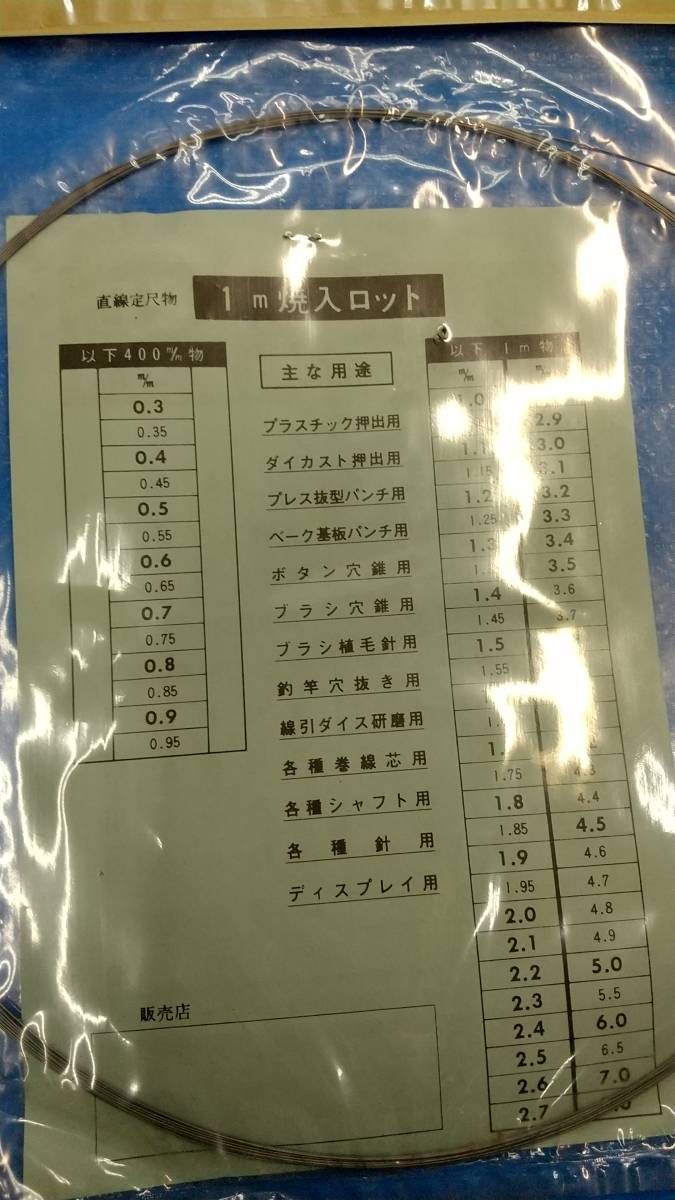 直線定尺物
1m焼入ロット
以下400m/m物
m/m
0.3
0.35
0.4
0.45
0.5
0.55
0.6
0.65
0.7
0.75
0.8
0.85
0.9
0.95
主な用途
プラスチック押出用
ダイカスト押出用
プレス抜型パンチ用
ベーク基板パンチ用
ボタン穴錐用
ブラシ穴錐用
ブラシ植毛針用
釣竿穴抜き用
線引ダイス研磨用
各種巻線芯用
各種シャフト用
各種針用
ディスプレイ用
以下1m物
m/m
1.0 2.9
1.1 3.0
1.15 3.1
1.2 3.2
1.25 3.3
1.3 3.4
3.5
1.4 3.6
1.45 3.7
1.5
1.55
1.75 4.3
1.8 4.4
1.85 4.5
1.9 4.6
1.95 4.7
2.0 4.8
2.1 4.9
2.2 5.0
2.3 5.5
2.4 6.0
2.5 6.5
2.6 7.0
2.7
販売店